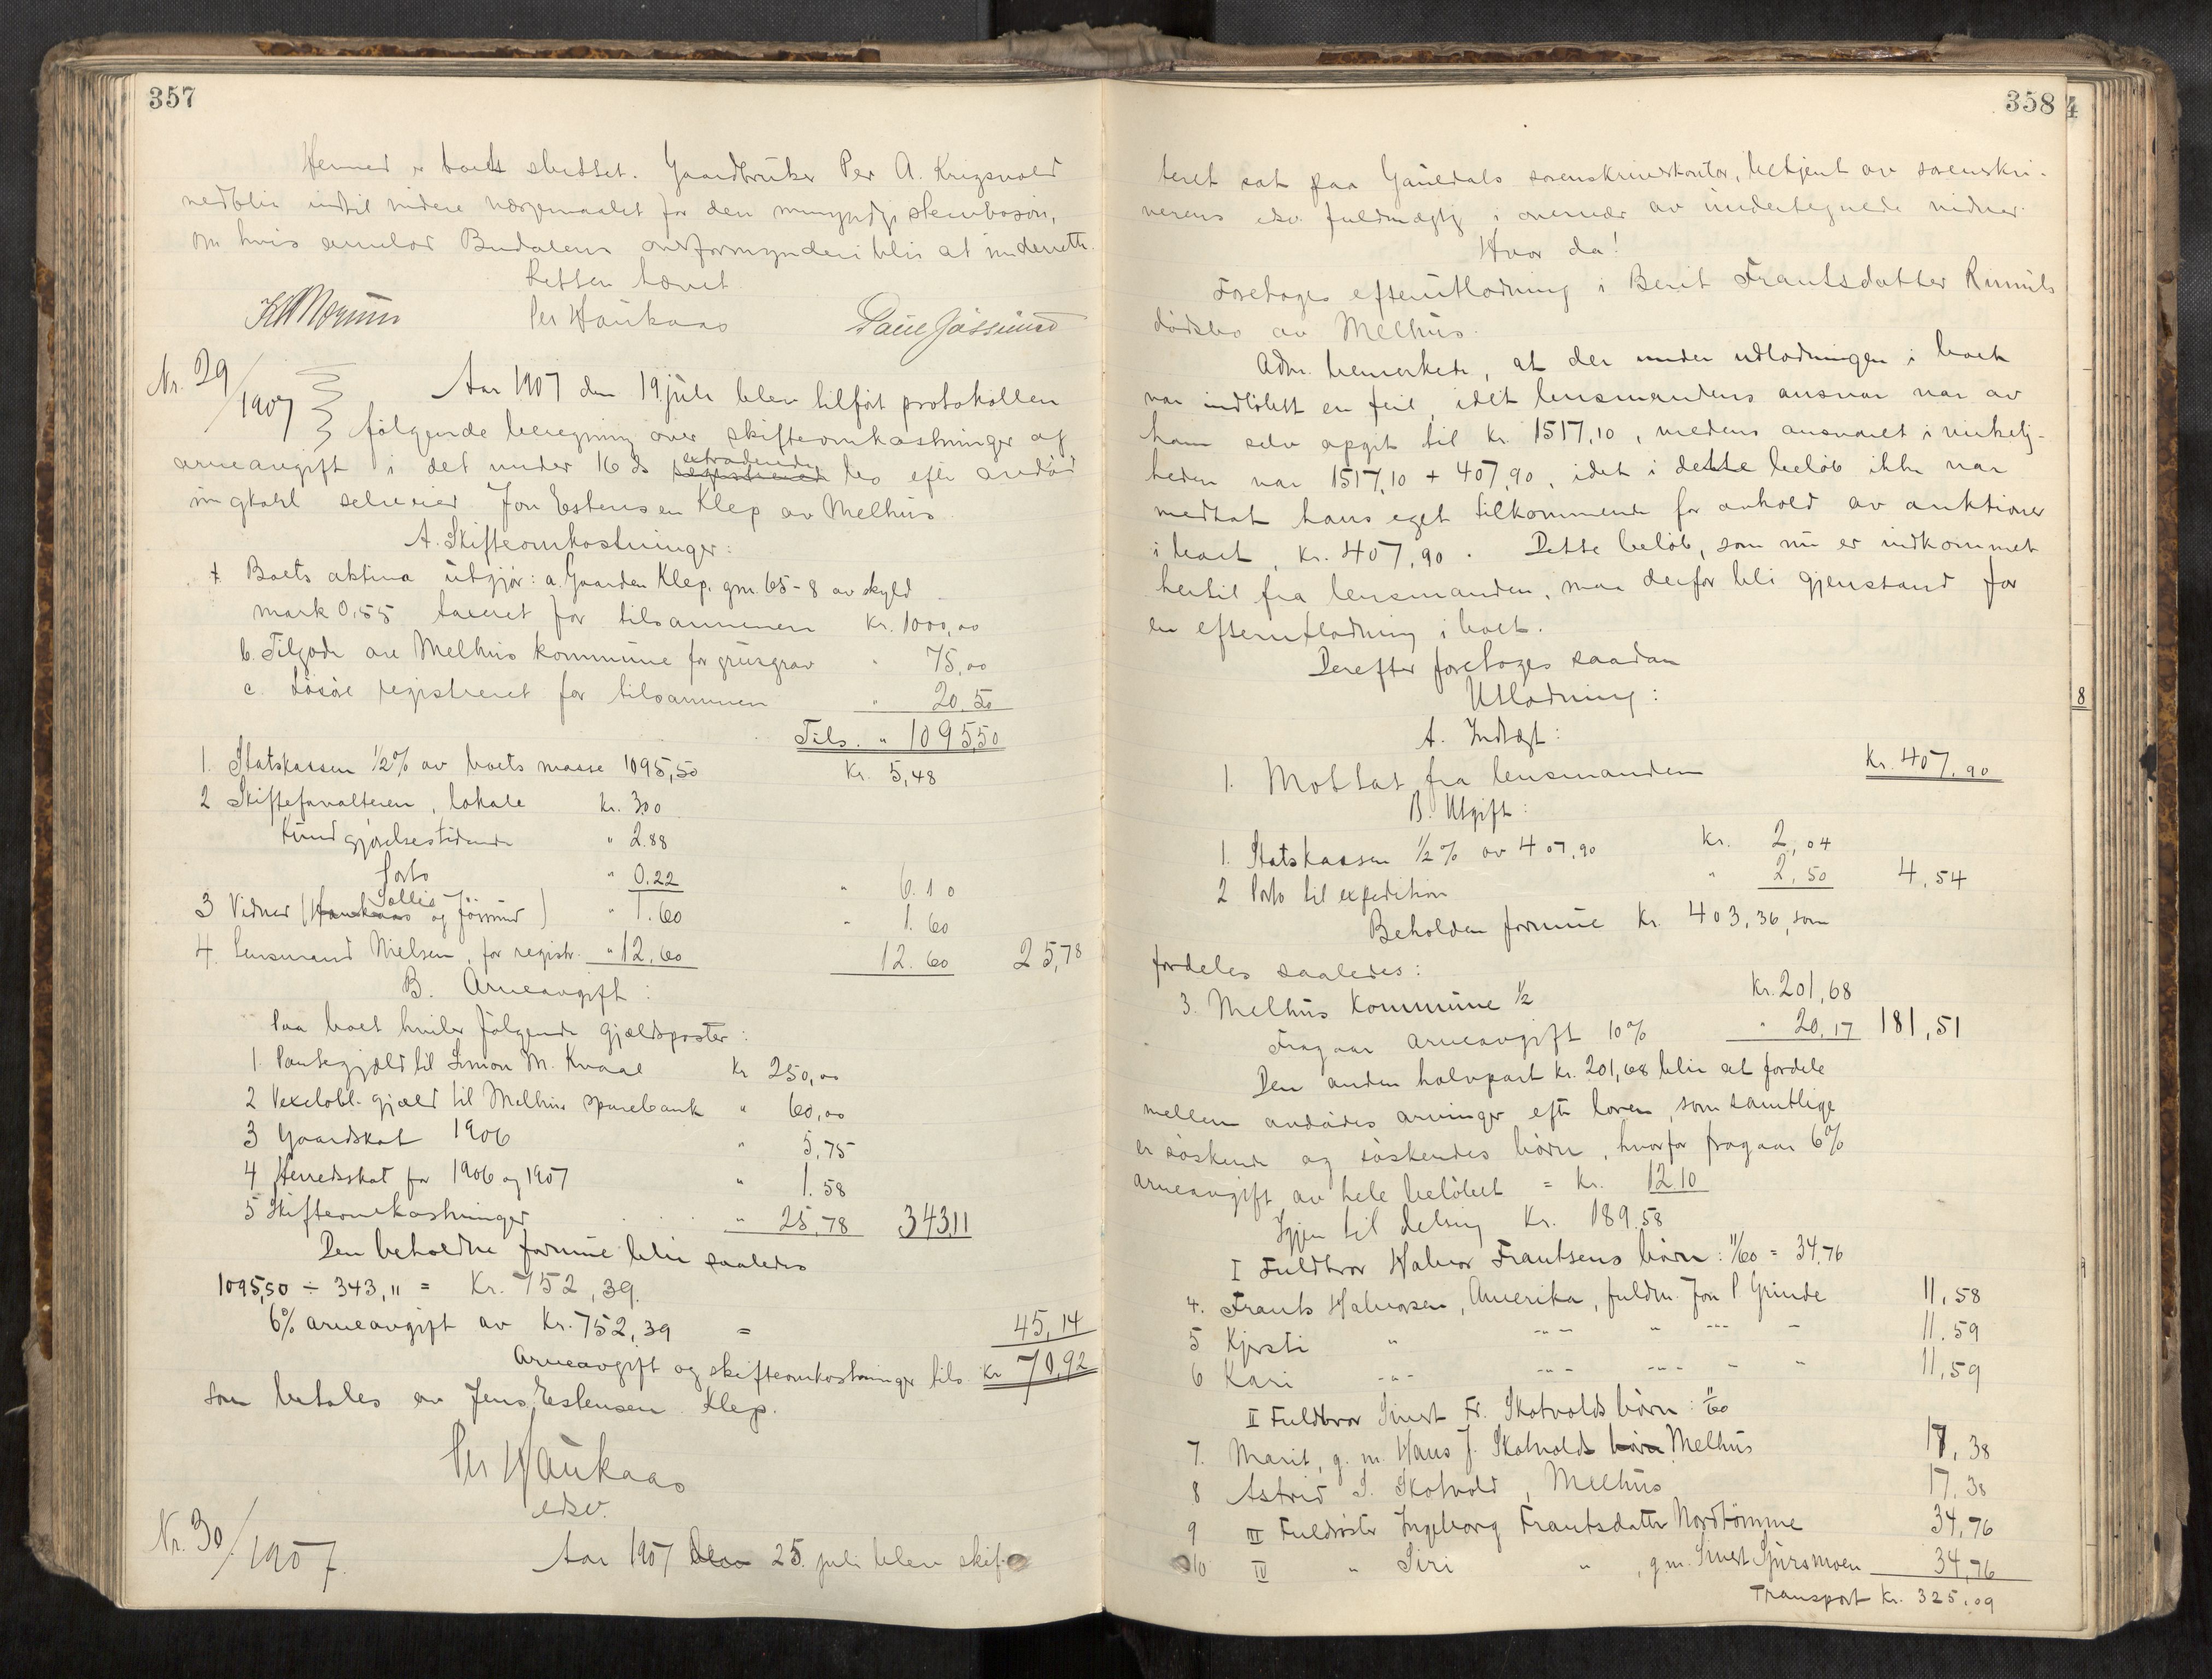 357
Hermed er boets sluttet. Gaardbruker Per A. Krigsvold
vedblir indtil videre værgemaalet for den umyndige stenboson,
om hvis arvelod Budalens overformynderi blir at underrette.
Retten hævet
Per Haukaas
Nr. 29/1907
Aar 1907 den 19 juli blev tilført protokollen
følgende beregning over skifteomkostninger og
arveavgift i det under 16 ds extraderede bo efter avdød
ungkarl selveier Jon Estensen Klep av Melhus.
A. Skifteomkostninger:
Boets aktiva utgjør: a. Gaarden Klep, gnr. 65-8 av skyld
mark 0,55 taxeret for tilsammen Kr. 1000,00
b. Tilgode hos Melhus kommune for grusgrav " 75,00
c. Løsøre registreret for tilsammen " 20.50
Tils. " 1095,50
1. Statskassen ½% av boets masse 1095,50 Kr. 5,48
2 Skifteforvalteren, lokale kr. 3.00
Kundgjørelsestidende " 2.88
Porto " 0.22 " 6.10
3 Vidner (Sollie og Jössund) " 1.60 " 1.60
4. Lensmand Nielsen, for registr. " 12.60 12.60 25,78
B. Arveavgift:
Paa boet hviler følgende gjældsposter:
1. Pantegjæld til Simon M. Kvaal Kr 250,00
2 Vexelobl. gjæld til Melhus sparebank " 60,00
3 Gaardskat 1906 " 5,75
4 Herredsskat for 1906 og 1907 " 1.58
5 Skifteomkostninger " 25,78 343,11
Den beholdne formue blir saaledes
1095,50 ÷ 343,11 = Kr. 752,39.
6% arveavgift av Kr. 752,39 = 45,14
Arveavgift og skifteomkostninger tils. Kr 70,92
som betales av Jens Estensen Klep.
Per Haukaas
edsv.
Nr. 30/1907.
Aar 1907 den 25. juli blev skif-
358
teret sat paa Gauldals sorenskriverkontor, betjent av sorenskri-
verens edsv. fuldmægtig i overvær av undertegnede vidner.
Hvor da!
Foretoges efterutlodning i Berit Frantsdatter Rimuls
dødsbo av Melhus.
Adm. bemerkede, at der under udlodningen i boet
var indløbet en feil, idet lensmandens ansvar var av
ham selv opgit til kr. 1517,10, medens ansvaret i virkelig-
heden var 1517,10 + 407,90, idet i dette beløb ikke var
medtat hans eget tilkommende for avhold av auktioner
i boet, kr. 407,90. Dette beløb, som nu er indkommet
hertil fra lensmanden, maa derfor bli gjenstand for
en efterutlodning i boet.
Derefter foretoges saadan
Utlodning:
A. Indtægt:
1. Mottat fra lensmanden Kr. 407.90
B. Utgift:
1. Statskassen ½% av 407,90 Kr. 2,04
2 Porto til expedition " 2,50 4,54
Beholden formue Kr. 403,36, som
fordeles saaledes:
3. Melhus kommune ½ Kr. 201,68
Fragaar arveavgift 10% " 20,17 181,51
Den anden halvpart kr. 201,68 blir at fordele
mellem avdødes arvinger efter loven, som samtlige
er søskende og søskendes børn, hvorfor fragaar 6%
arveavgift av hele beløbet = Kr. 12.10
Igjen til deling Kr. 189.58
I Fuldbror Halvor Frantsens børn: 11/60 = 34,76
4. Frants Halvorsen, Amerika, fuldm. Jon P. Grinde 11,58
5 Kjersti " -"- " -"- - 11.59
6 Kari -"- -"- -"- - " 11,59
II Fuldbror Sivert Fr. Skotvolds børn: 11/60
7. Marit, g. m. Hans J. Skotvold børn Melhus 17,38
8 Astrid S. Skotvold, Melhus 17.38
9 III Fuldsøster Ingeborg Frantsdatter Nordtømme 34,76
10 IV " Siri " , g.m. Sivert Spursmoen 34,76
Transport Kr. 325,09
8